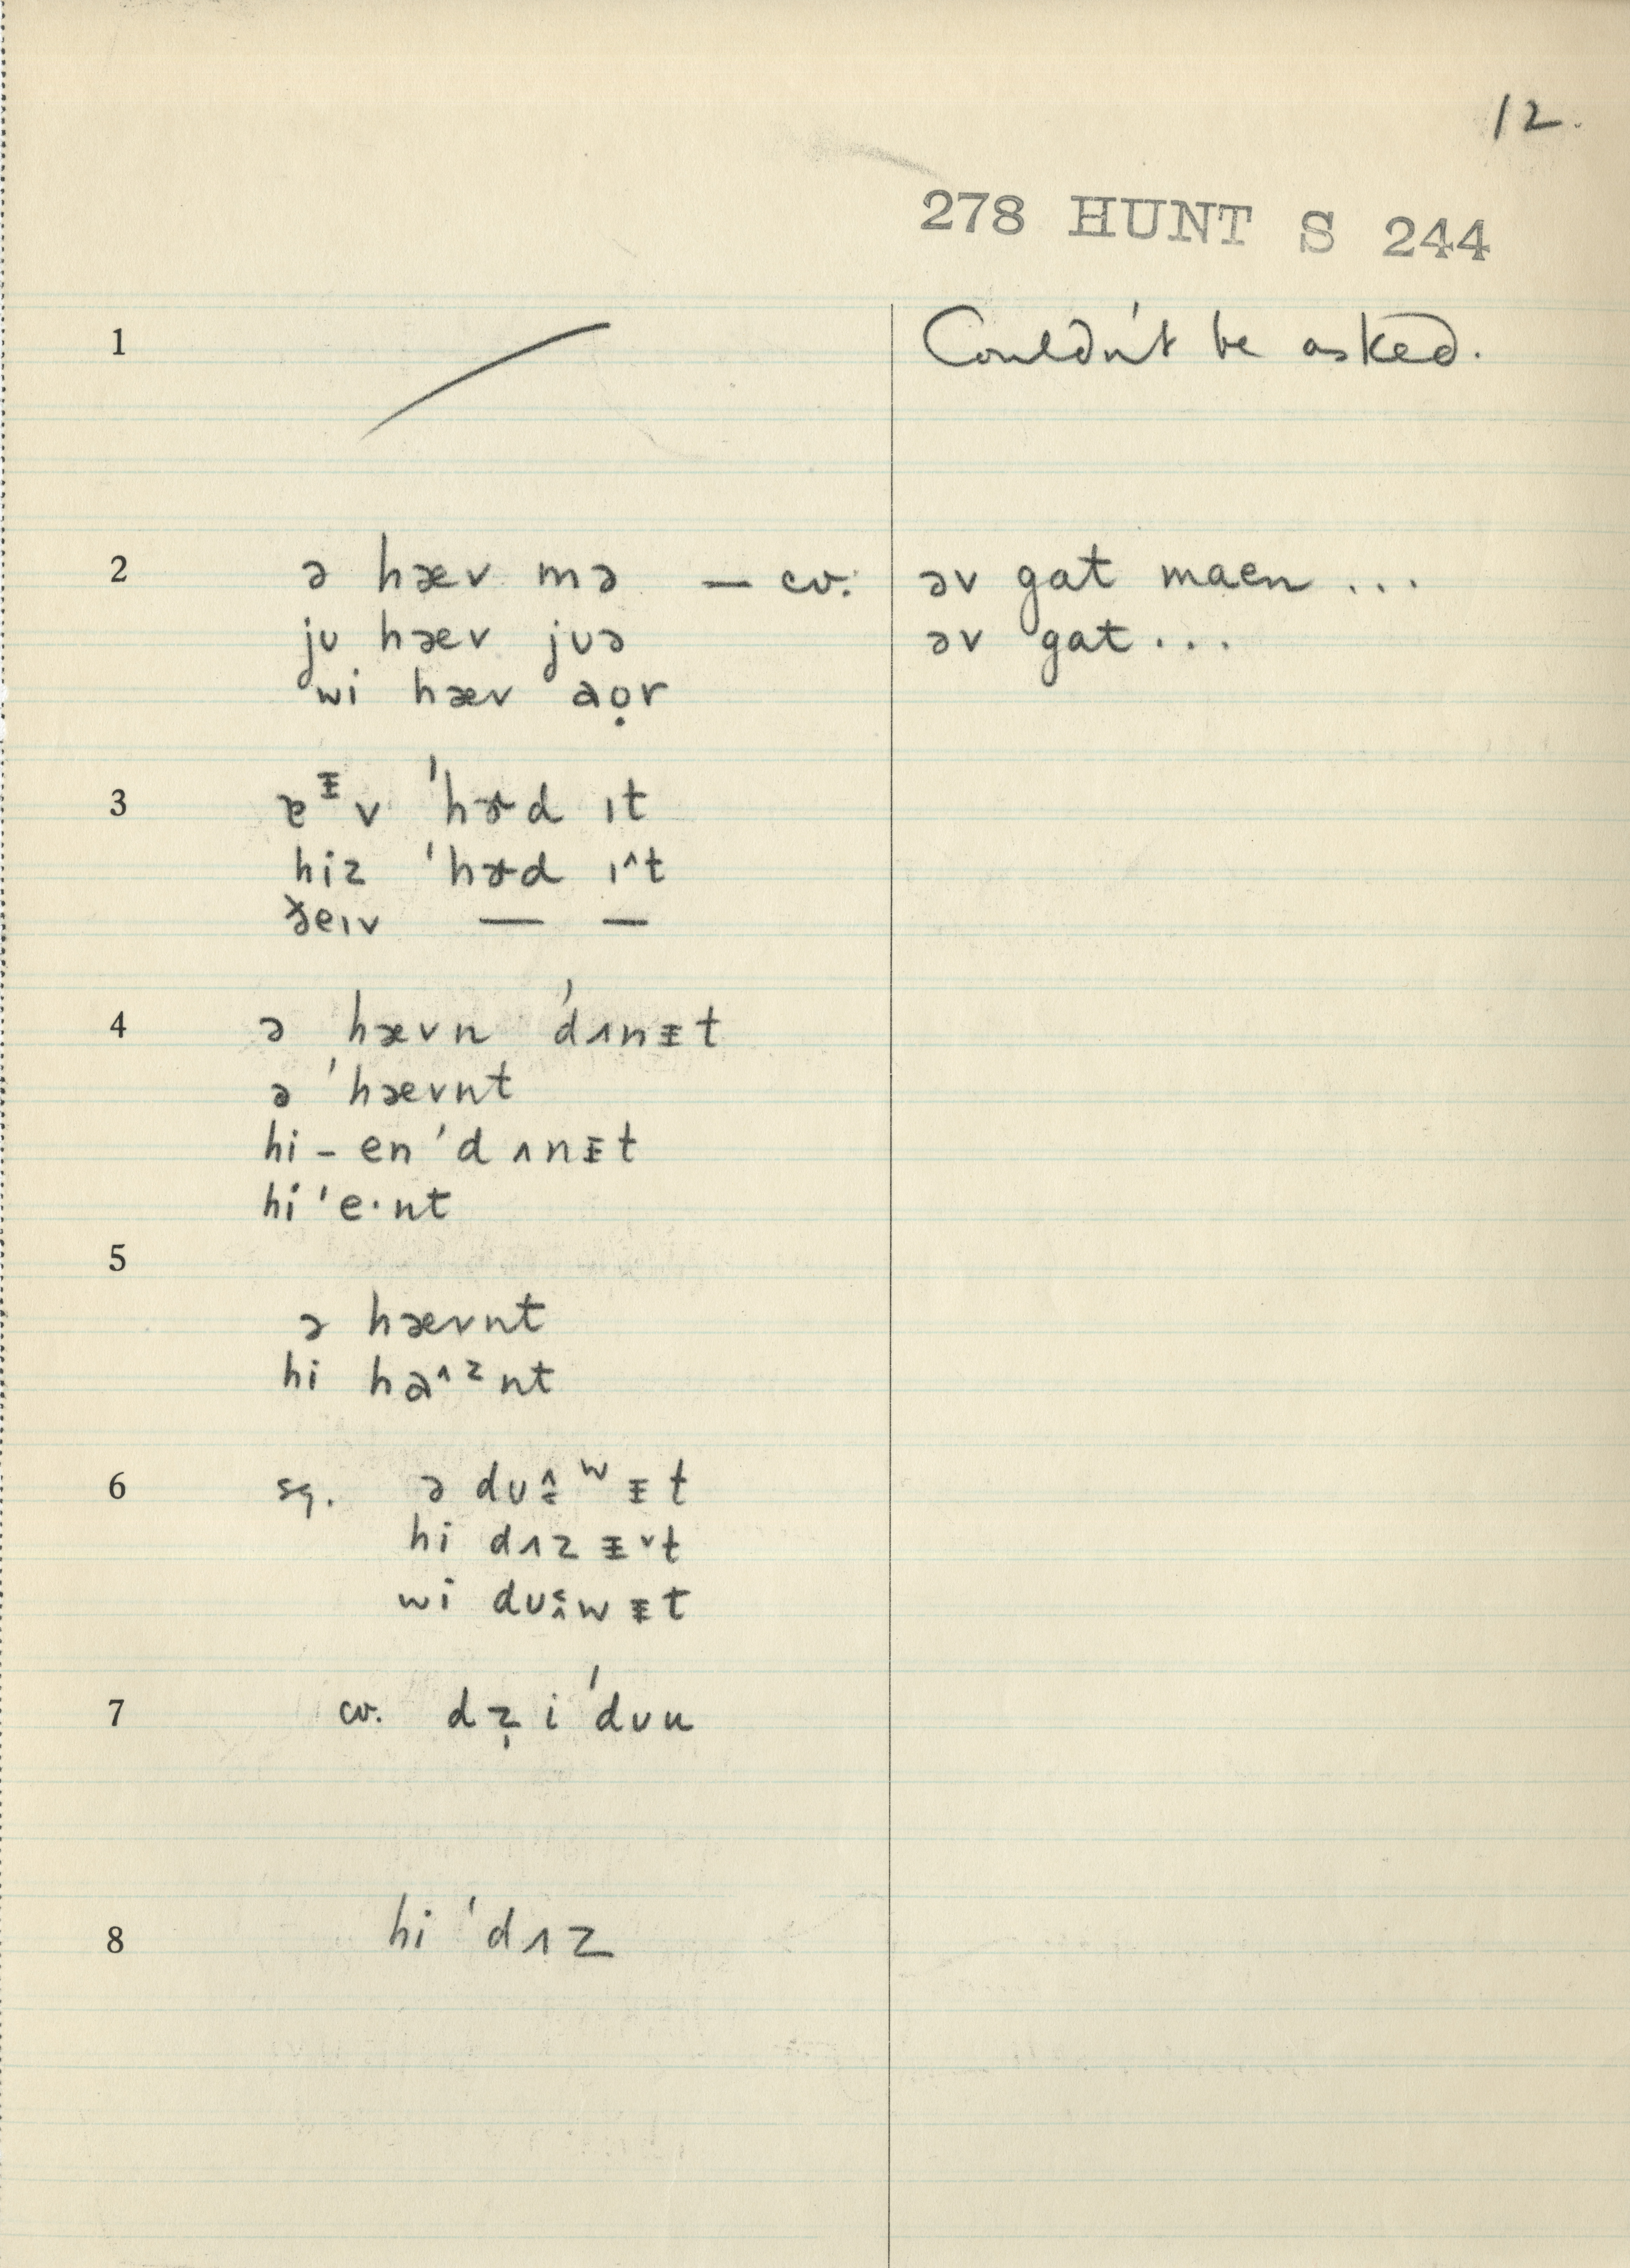 12.
278 HUNT S 244
1 Couldn't be asked.
2 ə hæv mə — cv. əv gat maen ...
ju hæv juə əv gat ...
wi hæv aọr
3 ɐᵻv 'hɚd ɪt
hiz 'hɚd ɪ^t
ðeɪv — —
4 ə hævn 'dʌnᵻt
ə 'hævnt
hi – en 'dʌnᵻt
hi 'e·nt
5
ə hævnt
hi haᶺᶻnt
6 sg. ə dʊ ʷᵻt
hi dʌz ᵻ˅t
wi dʊ wᵻt
7 cv. dz̩ i 'dʊu
8 hi 'dʌz